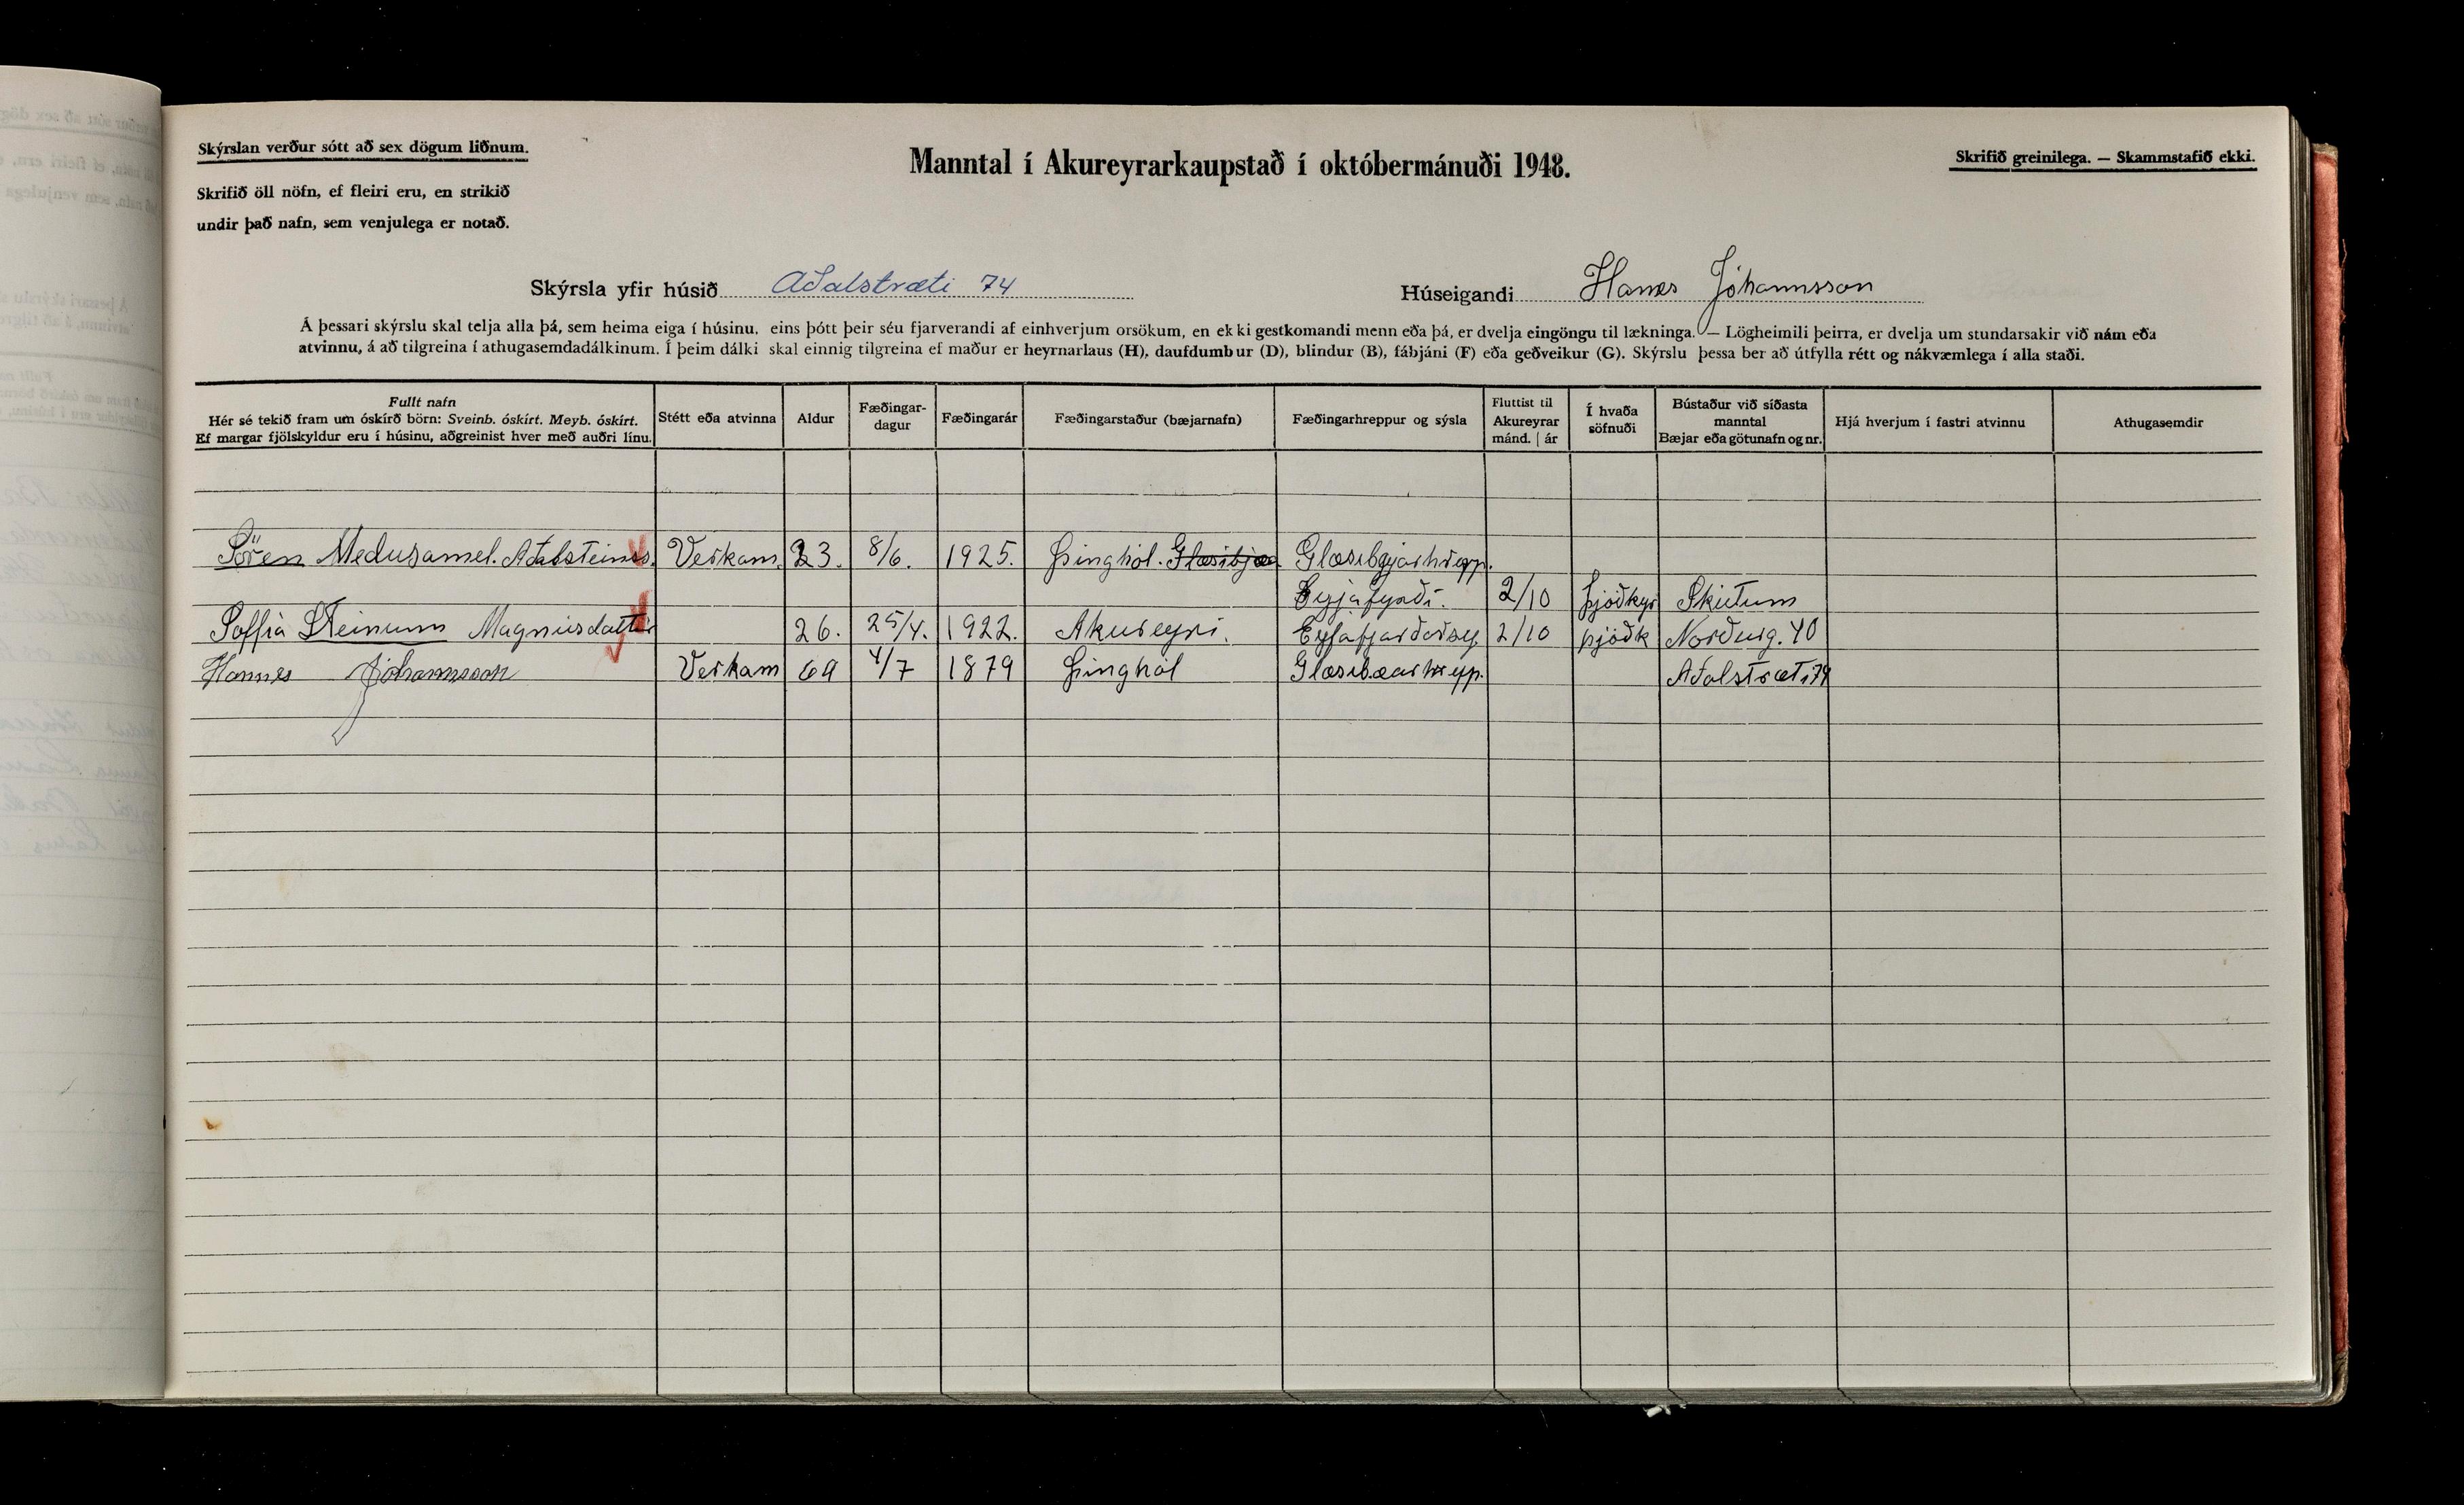 Skýrslan verður sótt að sex dögum liðnum.
Skrifið öll nöfn, ef fleiri eru, en strikið
undir það nafn, sem venjulega er notað.
Manntal í Akureyrarkaupstað í októbermánuði 1948.
Skrifið greinilega. — Skammstafið ekki.
Skýrsla yfir húsið Aðalstræti 74
Húseigandi Hannes Jóhannsson
Á þessari skýrslu skal telja alla þá, sem heima eiga í húsinu, eins þótt þeir séu fjarverandi af einhverjum orsökum, en ekki gestkomandi menn eða þá, er dvelja eingöngu til lækninga. — Lögheimili þeirra, er dvelja um stundarsakir við nám eða
atvinnu, á að tilgreina í athugasemdadálkinum. Í þeim dálki skal einnig tilgreina ef maður er heyrnarlaus (H), daufdumbur (D), blindur (B), fábjáni (F) eða geðveikur (G). Skýrslu þessa ber að útfylla rétt og nákvæmlega í alla staði.
Fullt nafn
Hér sé tekið fram um óskírð börn: Sveinb. óskírt. Meyb. óskírt.
Ef margar fjölskyldur eru í húsinu, aðgreinist hver með auðri línu.
Stétt eða atvinna
Aldur
Fæðingar-
dagur
Fæðingarár
Fæðingarstaður (bæjarnafn)
Fæðingarhreppur og sýsla
Fluttist til
Akureyrar
mánd. | ár
Í hvaða
söfnuði
Bústaður við síðasta
manntal
Bæjar eða götunafn og nr.
Hjá hverjum í fastri atvinnu
Athugasemdir
Sören Medusamel. Aðalsteinss. Verkam. 23. 8/6. 1925. Þinghól. Glæsibjæ Glæsibæjarhrepp.
Eyjafyrði. 2/10 þjóðkyr Skútum
Soffía Steinunn Magnúsdottir 26. 25/4. 1922. Akureyri. Eyjafjarðarsy. 2/10 þjóðk Norðurg. 40
Hannes Jóhannsson Verkam 69 4/7 1879 Þinghól Glæsibæarhrepp. Aðalstræti 74